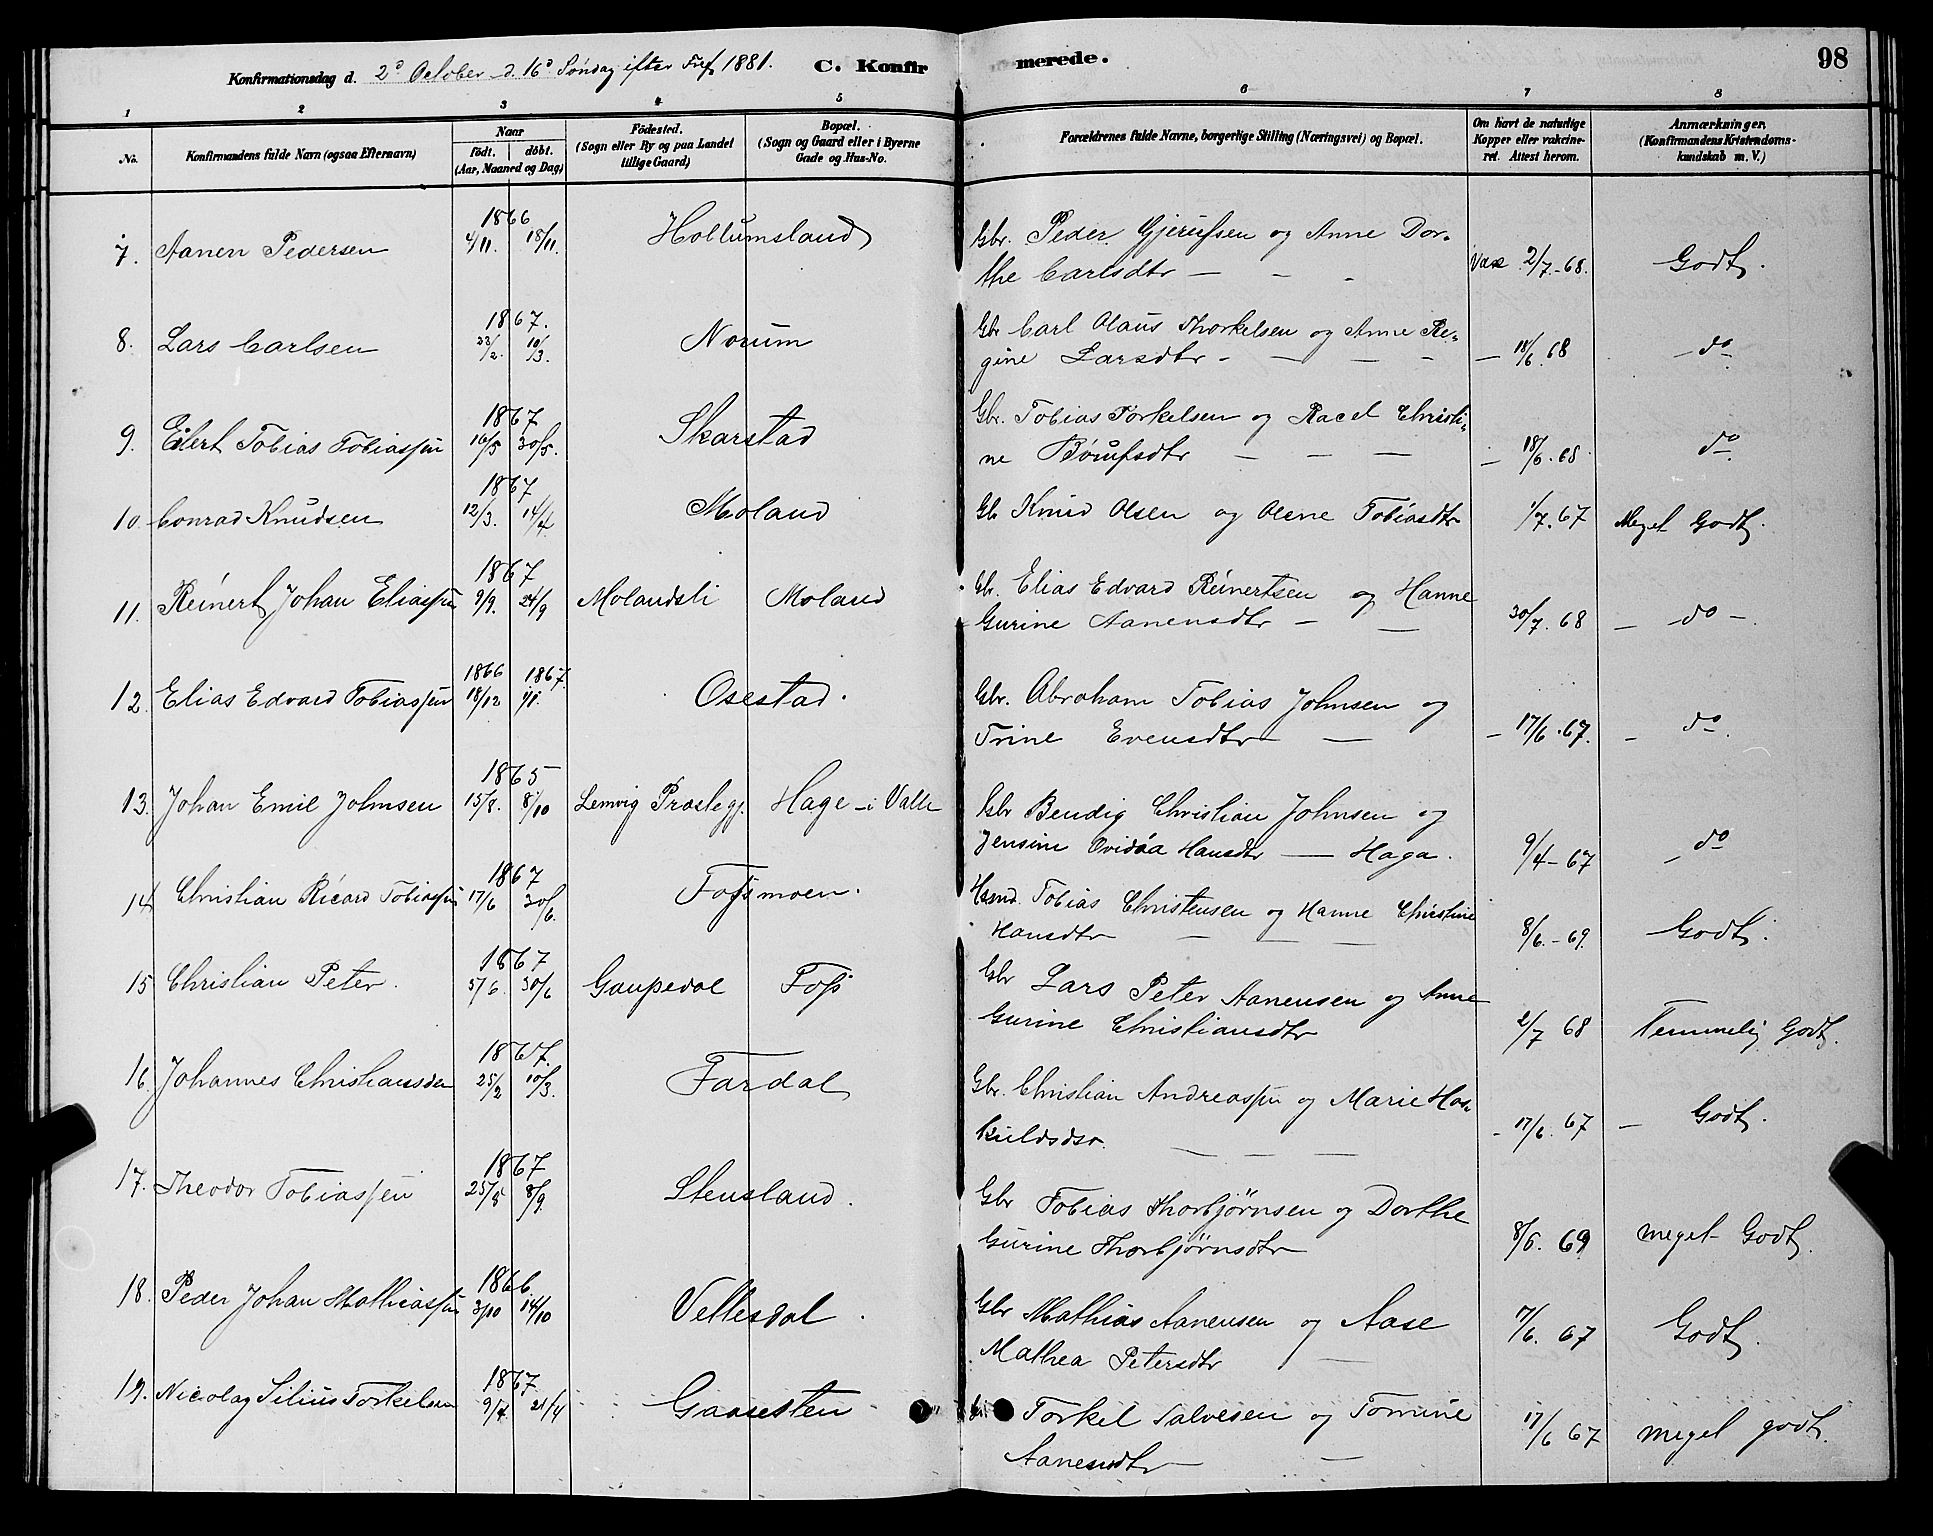 98
Konfirmationsdag d. 2den October d. 16de Søndag efter Tref. 1881. C. Konfirmerede.
1 2 3 4 5 6 7 8
No. Konfirmandens fulde Navn (ogsaa Efternavn) Naar født. døbt. (Aar, Maaned og Dag) Fødested. (Sogn eller By og paa Landet tillige Gaard) Bopæl. (Sogn og Gaard eller i Byerne Gade og Hus-No. Forældrenes fulde Navne, borgerlige Stilling (Næringsvei) og Bopæl. Om havt de naturlige Kopper eller vakcineret. Attest herom. Anmærkninger. (Konfirmandens Kristendomskundskab m. V.)
7. Aanen Pedersen 1866 4/11. 18/11. Hollumsland Gbr. Peder Gjerulfsen og Anne Dorthe Carlsdtr — - - Vax 2/7-68. Godt.
8. Lars Carlsen 1867. 23/2. 10/3. Norum Gbr Carl Olaus Thorkelsen og Anne Regine Larsdtr - — — - — 18/6.68 - do
9. Eilert Tobias Tobiassen 1867 16/5 30/5. Skarstad Gbr. Tobias Torkelsen og Racel Christine Børufsdtr — — — — 18/6.68 do
10. Conrad Knudsen 1867 12/3. 14/4. Moland Gb Knud Olsen og Olene Tobiasdtr 1/7.67 Meget Godt.
11. Reinert Johan Eliassen 1867 9/9. 24/9 Molandsli Moland Gb. Elias Edvard Reinertsen og Hanne Gurine Aanensdtr — — 30/7.68 — do —.
12. Elias Edvard Tobiassen 1866 18/12 1867. 1/1. Osestad. Gbr. Abraham Tobias Johnsen og Trine Evensdtr — — - 17/6.67. - do.
13. Johan Emil Johnsen 1865 15/8. 8/10 Lemvig Præstegj. Hage - i Valle Gbr Bendig Christian Johnsen og Jensine Ovidia Hansdtr — Haga. 9/4-67 - do
14 Christian Ricard Tobiassen 1867 17/6 30/6. Fossmoen. Hsmd. Tobias Christensen og Hanne Christine Hansdtr — — — 8/6.-69. Godt.
15 Christian Peter. 1867 5/6. 30/6 Gaupedal Foss Gbr Lars Peter Aanensen og Anne Gurine Christiansdtr 2/7 68 Temmelig Godt.
16. Johannes Christiansen 1867. 25/2 10/3. Fardal Gbr. Christian Andreassen og Marie Hoskuldsdtr. — — — - 17/6.67 — Godt.
17. Theodor Tobiassen 1867 25/8 8/9. Stensland. Gbr Tobias Thorbjørnsen og Dorthe Gurine Thorbjørnsdtr 8/6. 69 meget Godt.
18. Peder Johan Mathiassen 1866. 3/10 14/10 Vellesdal. Gbr Mathias Aanensen og Aase Mathea Petersdtr — 17/6. 67 Godt.
19. Nicolay Silius Torkelsen 1867 9/4. 21/4 Gaasesten Torkel Salvesen og Tomine Aanensdtr — 17/6 67 meget godt.